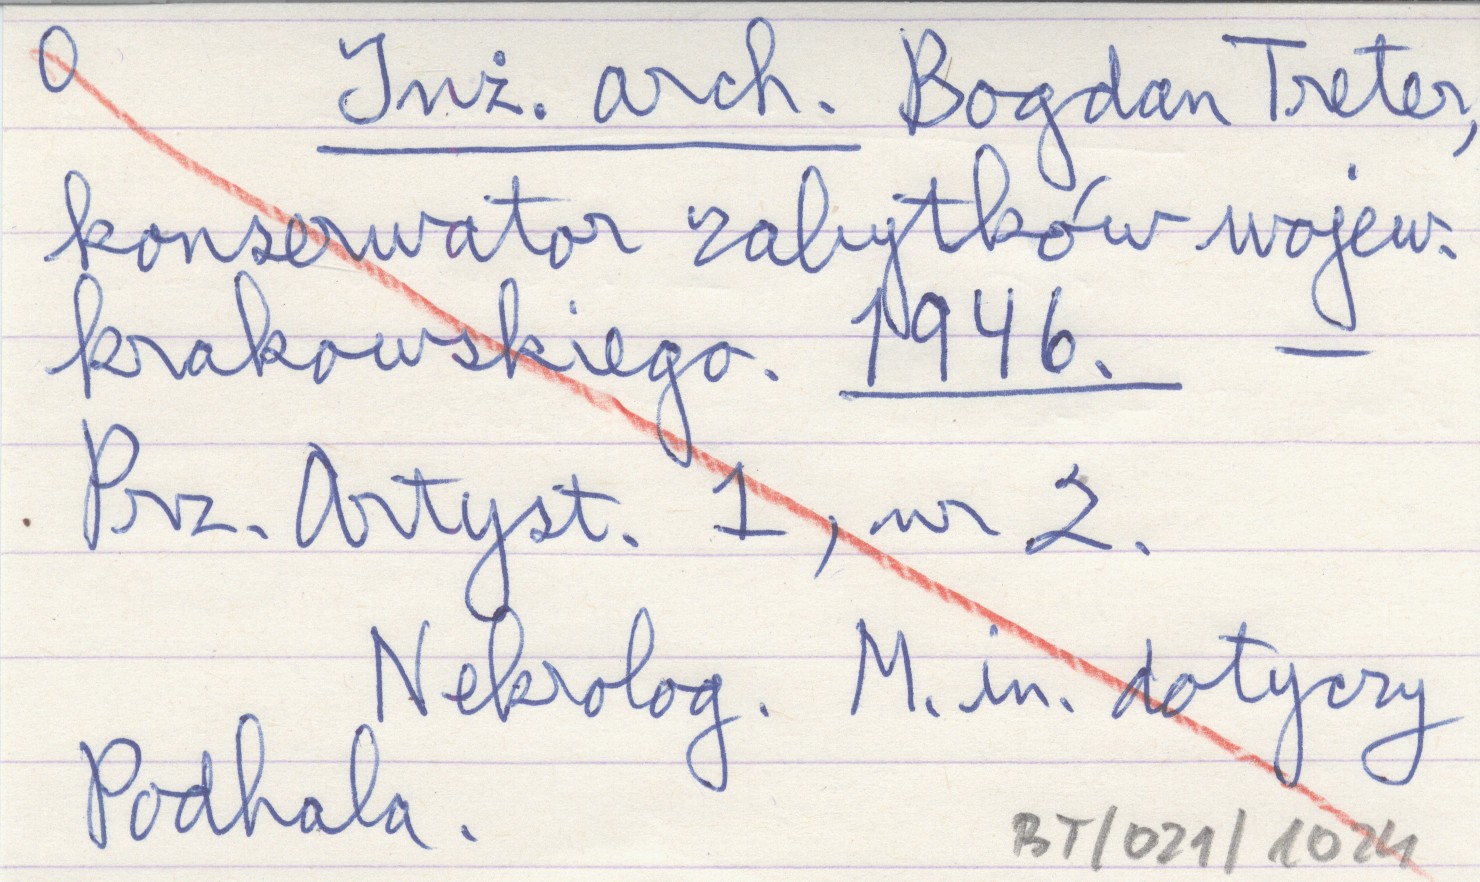 O Inż. arch. Bogdan Treter,
konserwator zabytków wojew.
krakowskiego. 1946. —
Prz. Artyst. 1, nr 2.
Nekrolog. M. in. dotyczy
Podhala.
BT/021/1024